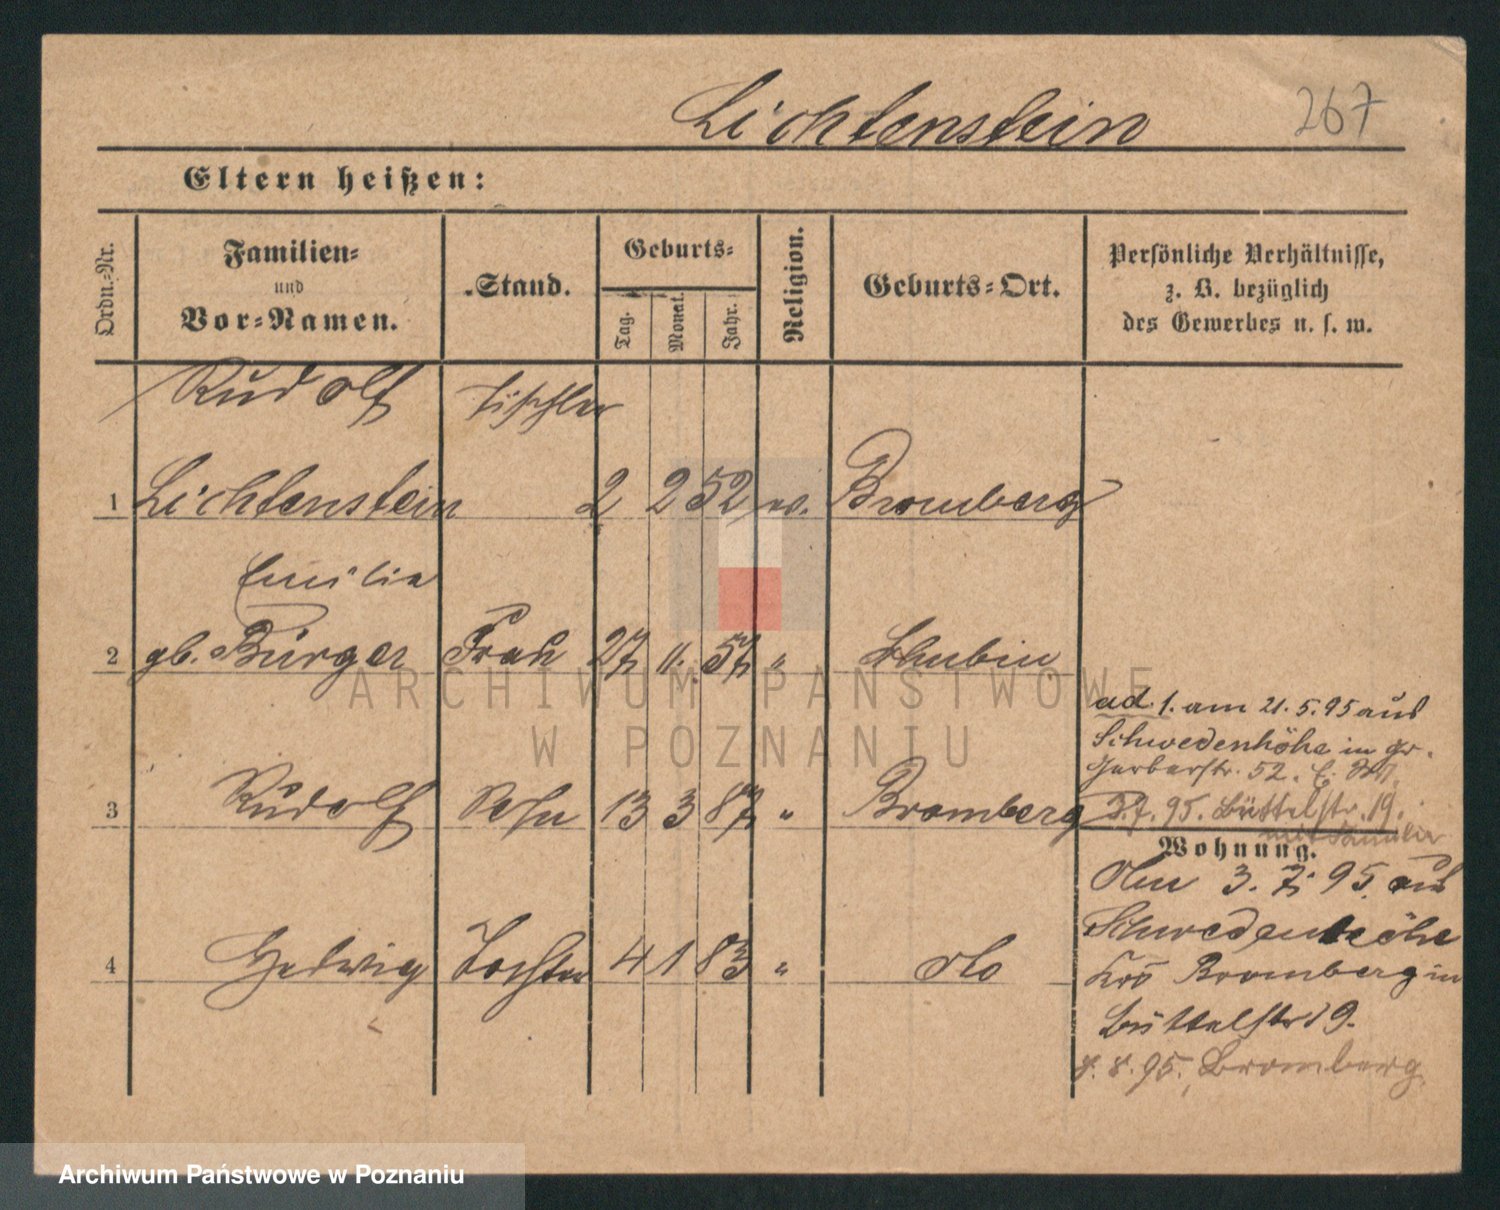 Lichtenstein 267
Eltern heißen:
Ordn.-Nr.
Familien-
und
Vor-Namen.
Stand.
Geburts-
Tag.
Monat.
Jahr.
Religion.
Geburts-Ort.
Persönliche Verhältnisse,
z. B. bezüglich
des Gewerbes u. s. w.
Rudolf Tischler
1 Lichtenstein 2 2 52 ev. Bromberg
Emilie
2 gb. Bürger Frau 27 11. 57 " Schubin
3 Rudolf Sohn 13 3 87 " Bromberg
4 Hedwig Tochter 4 1 83 " dto
ad. 1. am 21. 5. 95 aus
Schwedenhöhe in Gr.
Gerberstr. 52.
3.7.95. Büttelstr. 19.
mit Familie
Wohnung.
Am 3. 7. 95 aus
Schwedenhöhe
Krs Bromberg in
Büttelstr 19.
8. 95. Bromberg
ARCHIWUM PAŃSTWOWE
W POZNANIU
Archiwum Państwowe w Poznaniu